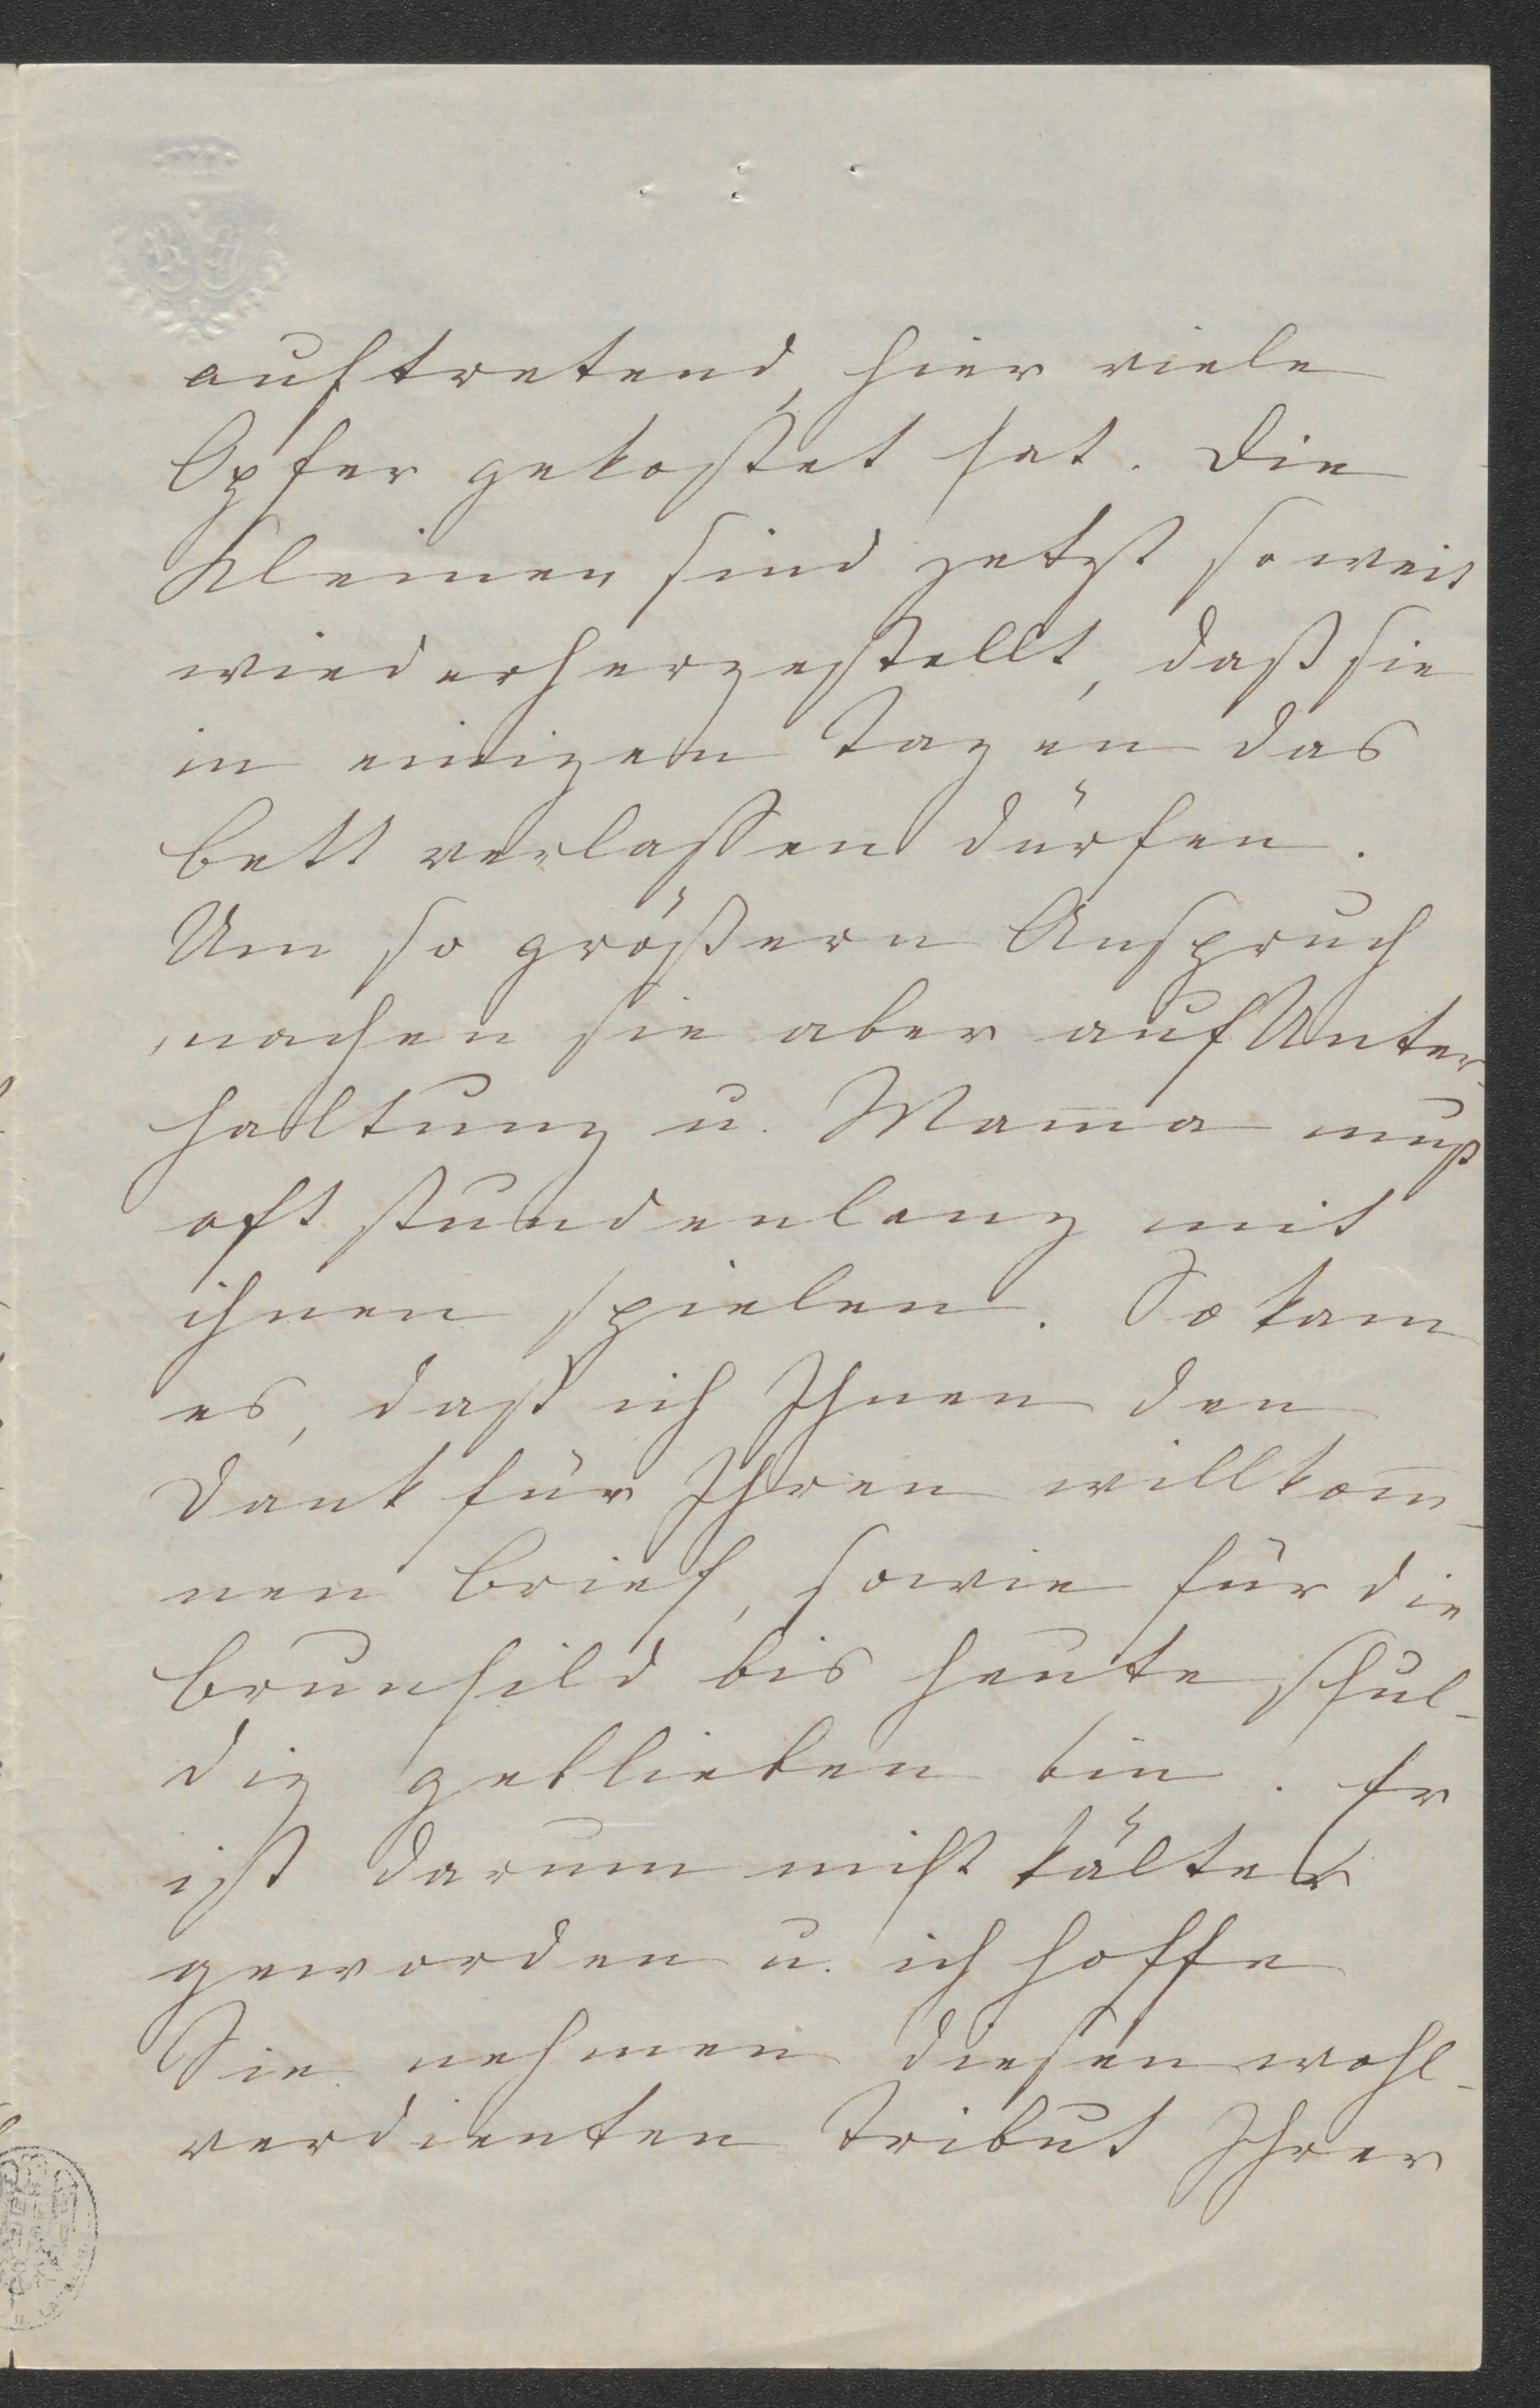 auftretend, hier viele
Opfer gekostet hat. Die
Kleinen sind jetzt so weit
wiederhergestellt, daß sie
in einigen Tagen das
Bett verlassen dürfen.
Um so größern Anspruch
machen sie aber auf Unter-
haltung u. Mam̅a muß
oft stundenlang mit
ihnen spielen. So kam
es, daß ich Ihnen den
Dank für Ihren willkom̅-
nen Brief, sowie für die
Brunhild bis heute schul-
dig geblieben bin. Er
ist darum nicht kälter
geworden u. ich hoffe
Sie nehmen diesen wohl-
verdienten Tribut Ihrer